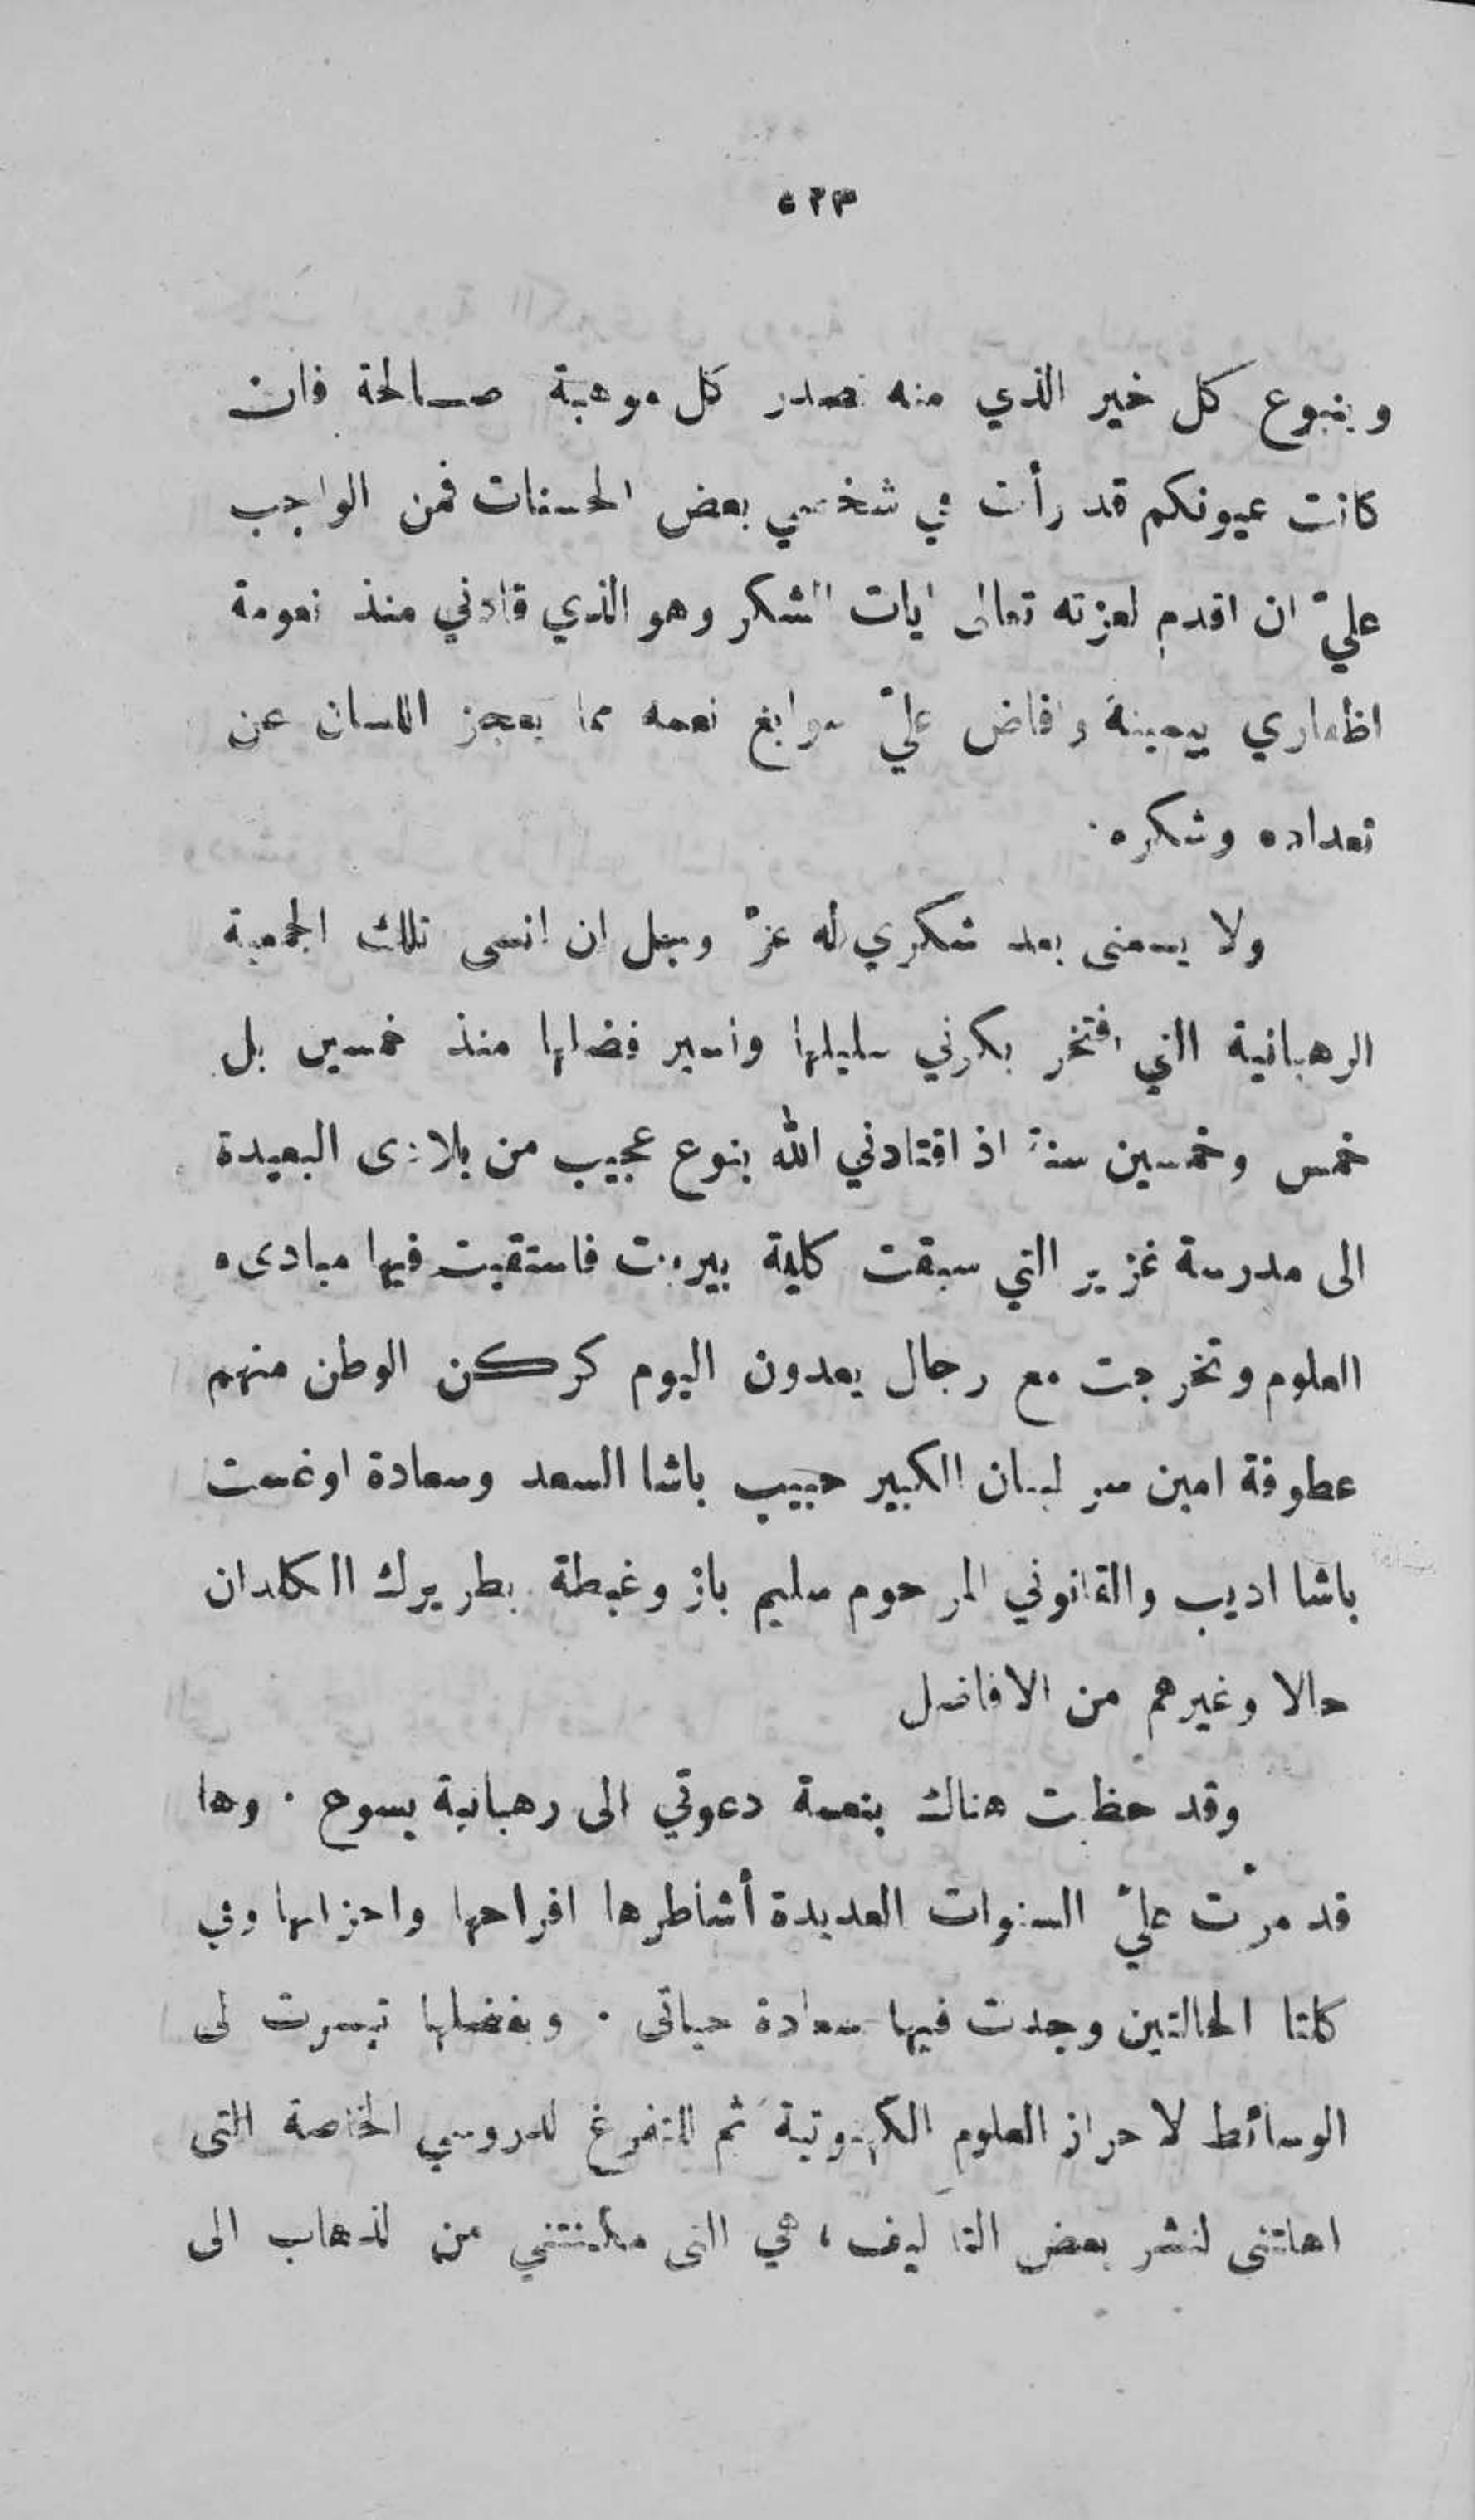 ٥٢٣
وينبوع كل خير الذي منه تصدر كل موهبة صالحة فان
كانت عيونكم قد رأت في شخصي بعض الحسنات فمن الواجب
عليّ ان اقدم لعزته تعالى ايات الشكر وهو الذي قادني منذ نعومة
اظفاري بيمينه وافاض عليّ سوابغ نعمه مما يعجز اللسان عن
تعداده وشكره.
ولا يسعنى بعد شكري له عزّ وجل ان انسى تلك الجمعية
الرهبانية التي افتخر بكوني سليلها واسير فضلها منذ خمسين بل
خمس وخمسين سنة اذ اقتادني الله بنوع عجيب من بلادى البعيدة
الى مدرسة غزير التي سبقت كلية بيروت فاستقيت فيها مبادىء
العلوم وتخرجت مع رجال يعدون اليوم كركن الوطن منهم
عطوفة امين سر لبنان الكبير حبيب باشا السعد وسعادة اوغست
باشا اديب والقانوني المرحوم سليم باز وغبطة بطريرك الكلدان
حالا وغيرهم من الافاضل
وقد حظيت هناك بنعمة دعوتي الى رهبانية يسوع . وها
قد مرّت عليّ السنوات العديدة أشاطرها افراحها واحزانها وفي
كلتا الحالتين وجدت فيها سعادة حياتى . وبفضلها تيسرت لى
الوسائط لاحراز العلوم الكهنوتية ثم للتفرغ للدروس الخاصة التى
اهلتنى لنشر بعض التآليف، هي التى مكنتني من الذهاب الى